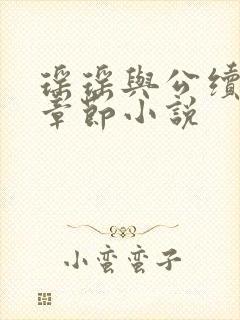 瑶瑶與公續
章節小說
小蛮蛮子